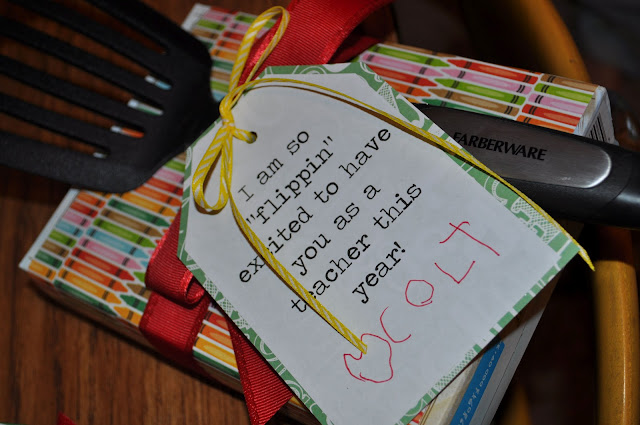 I am so
"flippin"
excited to have
you as a
teacher this
year!
COLT
FARBERWARE